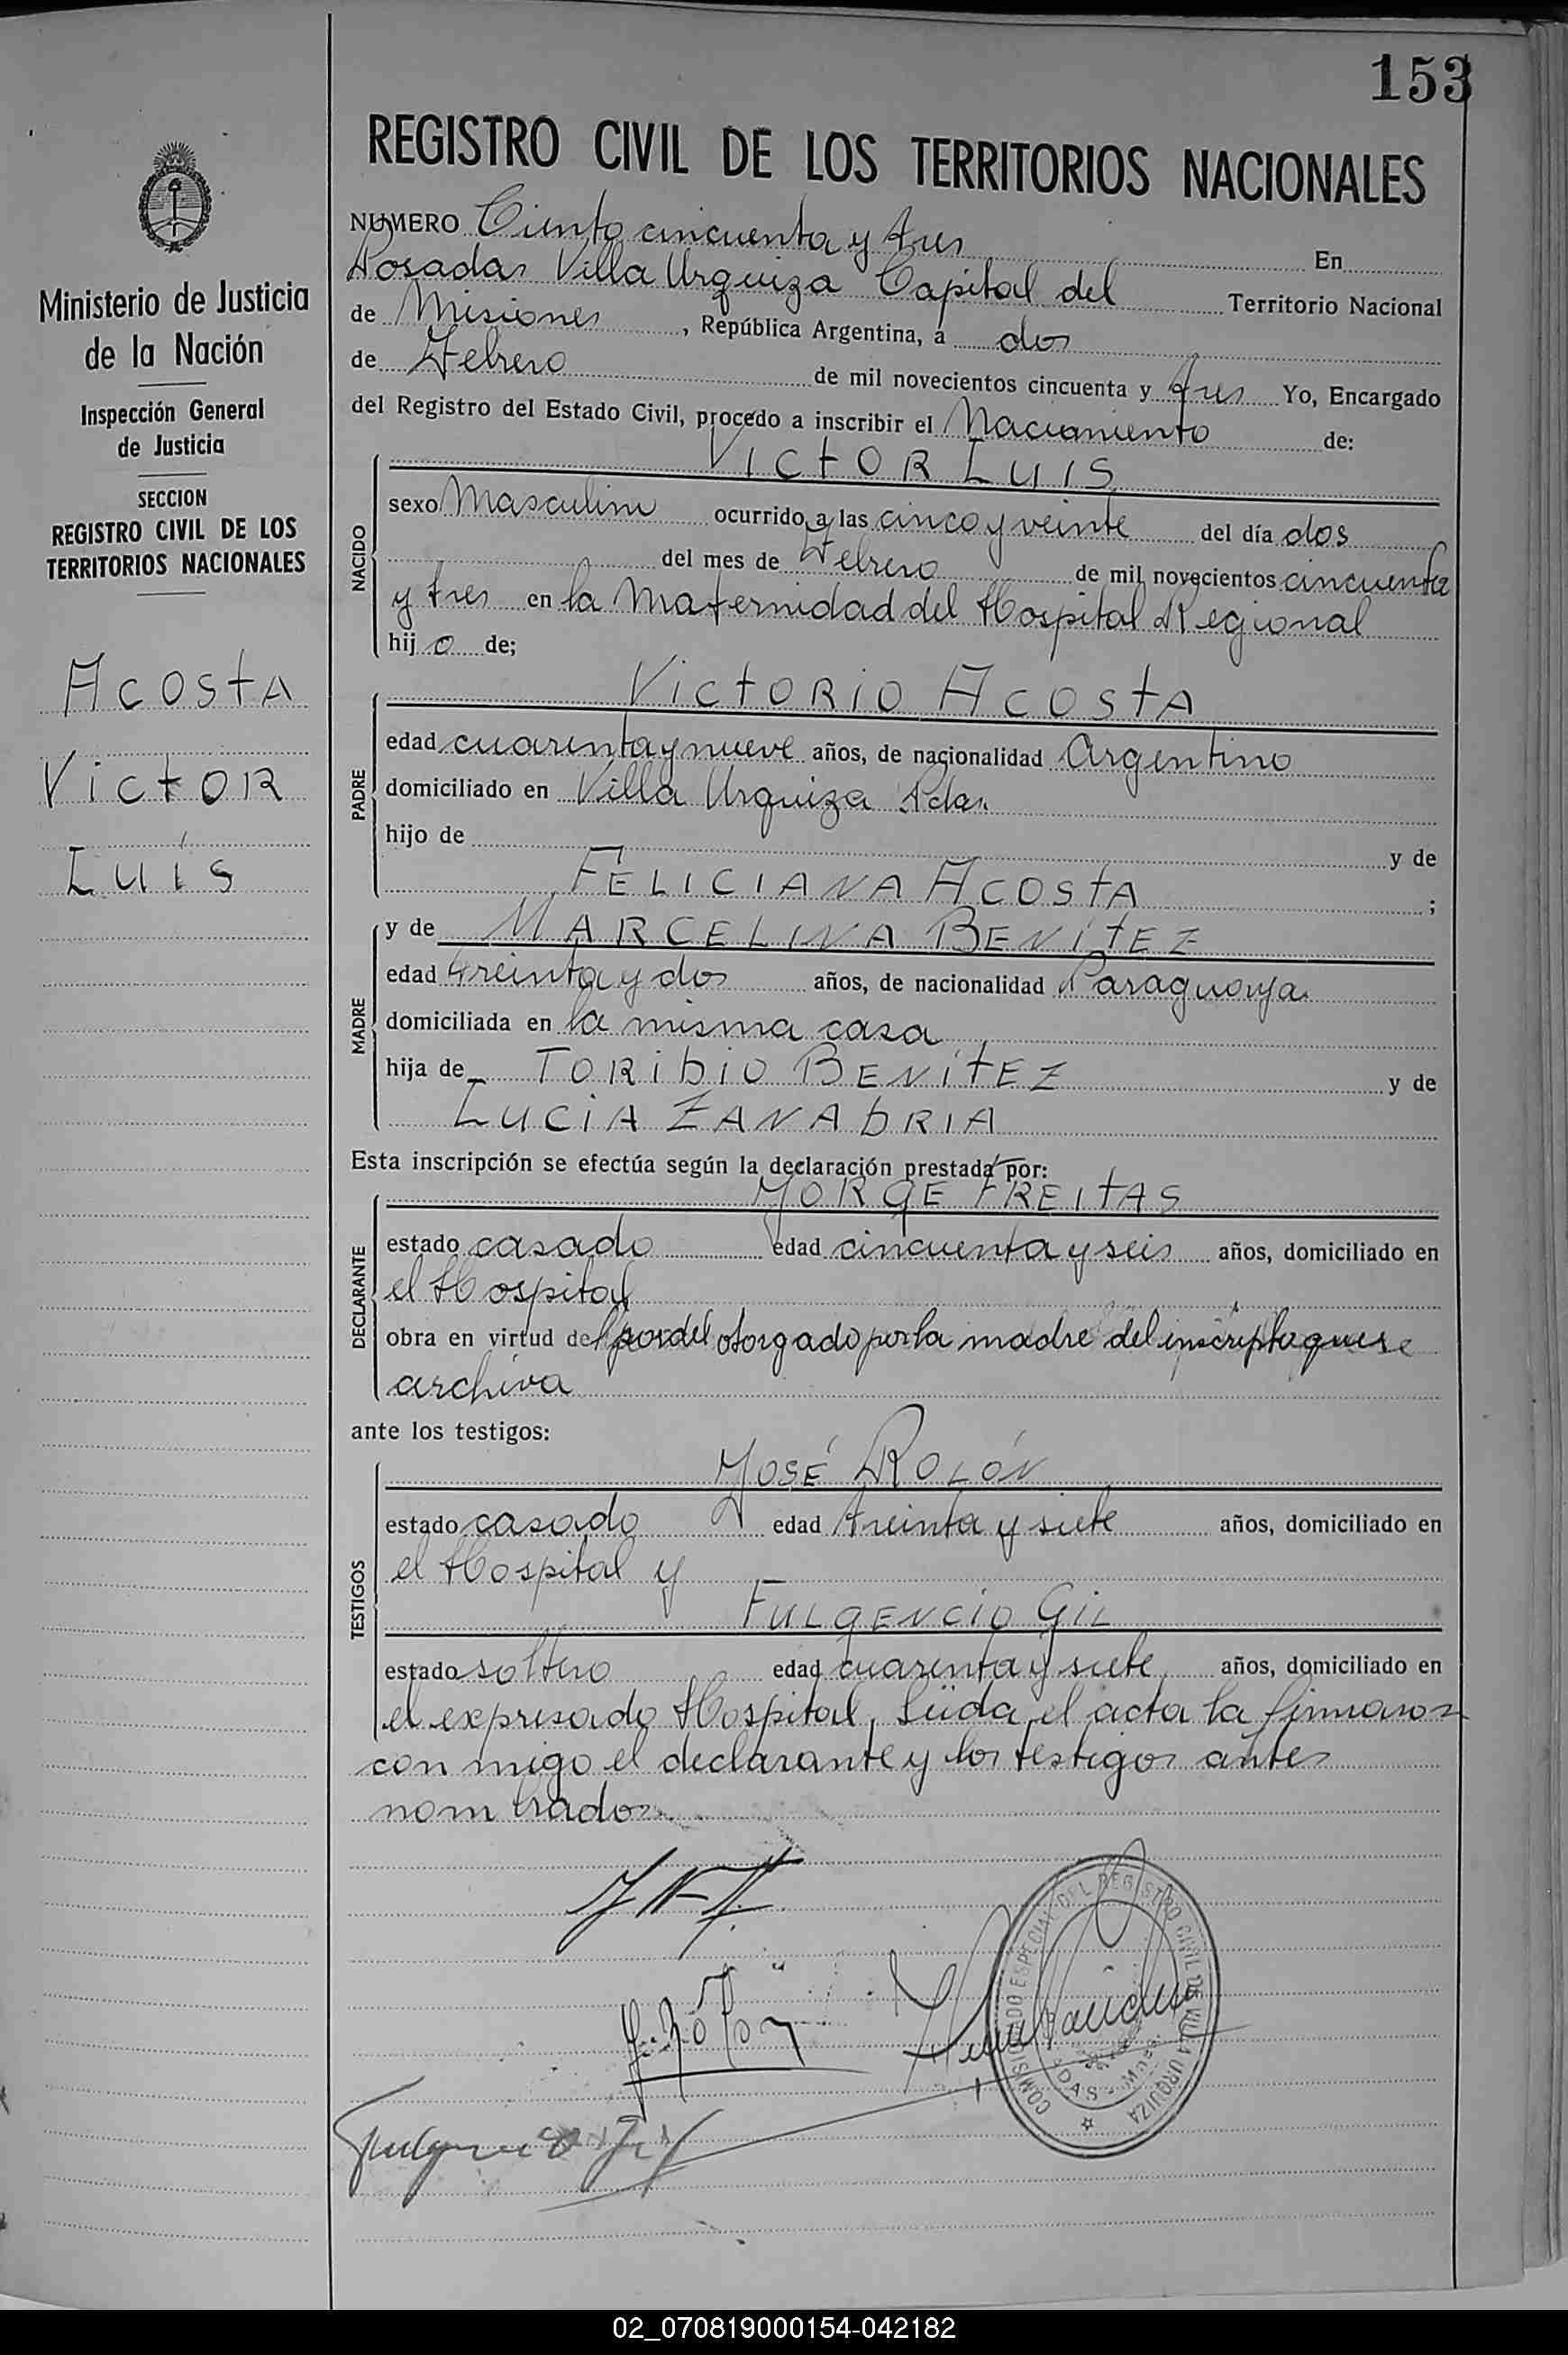 153
REGISTRO CIVIL DE LOS TERRITORIOS NACIONALES
Ministerio de Justicia
de la Nación
Inspección General
de Justicia
SECCION
REGISTRO CIVIL DE LOS
TERRITORIOS NACIONALES
Acosta
Victor
Luís
NUMERO Ciento cincuenta y tres En
Posadas Villa Urquiza Capital del Territorio Nacional
de Misiones, República Argentina, a dos
de Febrero de mil novecientos cincuenta y tres Yo, Encargado
del Registro del Estado Civil, procedo a inscribir el Nacimiento de:
VICTOR LUIS
NACIDO
sexo Masculino ocurrido a las cinco y veinte del día dos
del mes de Febrero de mil novecientos cincuenta
y tres en la Maternidad del Hospital Regional
hij o de;
VICTORIO ACOSTA
PADRE
edad cuarenta y nueve años, de nacionalidad Argentino
domiciliado en Villa Urquiza Pdas.
hijo de y de
FELICIANA ACOSTA ;
MADRE
y de MARCELINA BENÍTEZ
edad treinta y dos años, de nacionalidad Paraguaya
domiciliada en la misma casa
hija de TORIBIO BENÍTEZ y de
LUCIA ZANABRIA
Esta inscripción se efectúa según la declaración prestada por:
JORGE FREITAS
DECLARANTE
estado casado edad cincuenta y seis años, domiciliado en
el Hospital
obra en virtud del otorgado por la madre del inscripto que se
archiva
ante los testigos:
JOSÉ ROLÓN
TESTIGOS
estado casado edad treinta y siete años, domiciliado en
el Hospital y
FULGENCIO GIL
estado soltero edad cuarenta y siete años, domiciliado en
el expresado Hospital, Leída el acta la firmaron
con migo el declarante y los testigos antes
nombrados.
J. Rolon
Fulgencio Gil
COMISIONADO ESPECIAL DEL REGISTRO CIVIL DE VILLA URQUIZA
02_070819000154-042182